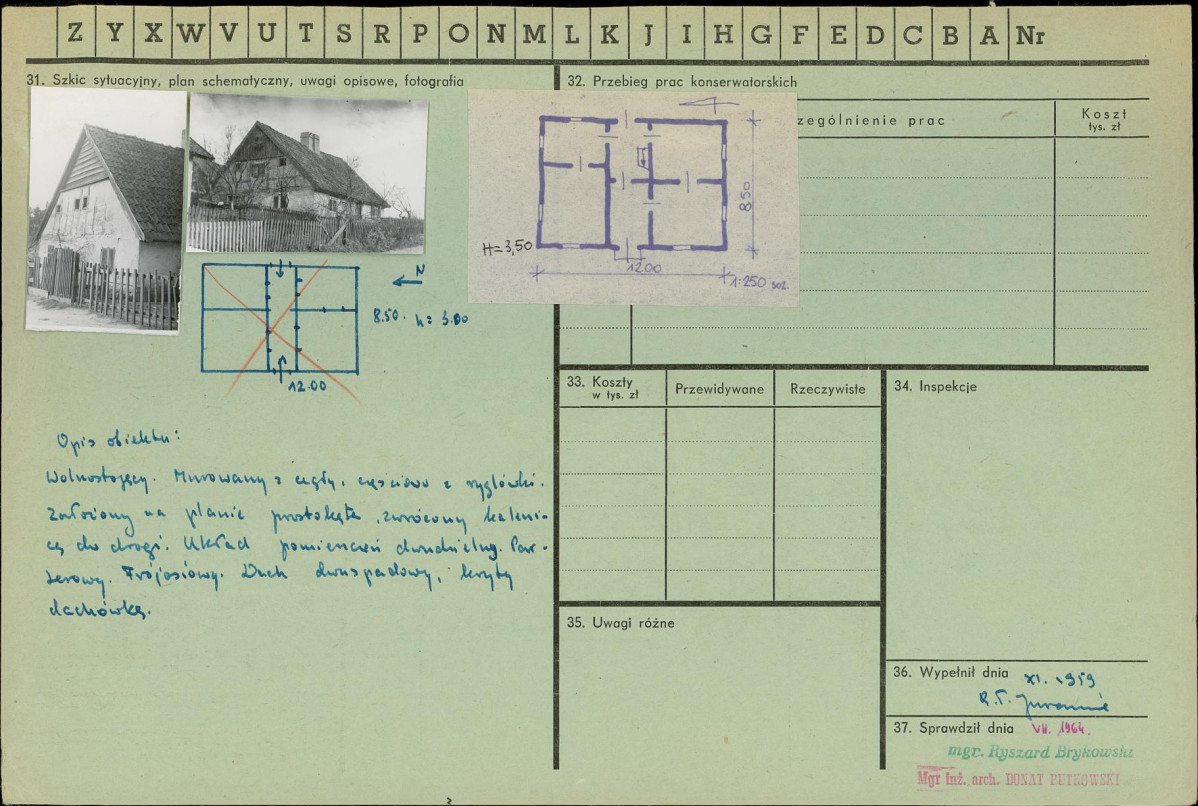 Z Y X W V U T S R P O N M L K J I H G F E D C B A Nr
31. Szkic sytuacyjny, plan schematyczny, uwagi opisowe, fotografia
8.50. h = 3.00
N
12.00
Opis obiektu:
Wolnostojący. Murowany z cegły, częściowo z ryglówki.
Założony na planie prostokąta, zwrócony kaleni-
cą do drogi. Układ pomieszczeń dwudzielny. Par-
terowy. Trójosiowy. Dach dwuspadowy, kryty
dachówką.
32. Przebieg prac konserwatorskich
zególnienie prac
Koszt
tys. zł
H=3,50
8.50
12.00
1:250
33. Koszty
w tys. zł
Przewidywane
Rzeczywiste
34. Inspekcje
35. Uwagi różne
36. Wypełnił dnia XI. 1959
37. Sprawdził dnia VII. 1964.
mgr. Ryszard Brykowski
Mgr inż. arch. DONAT PUTKOWSKI